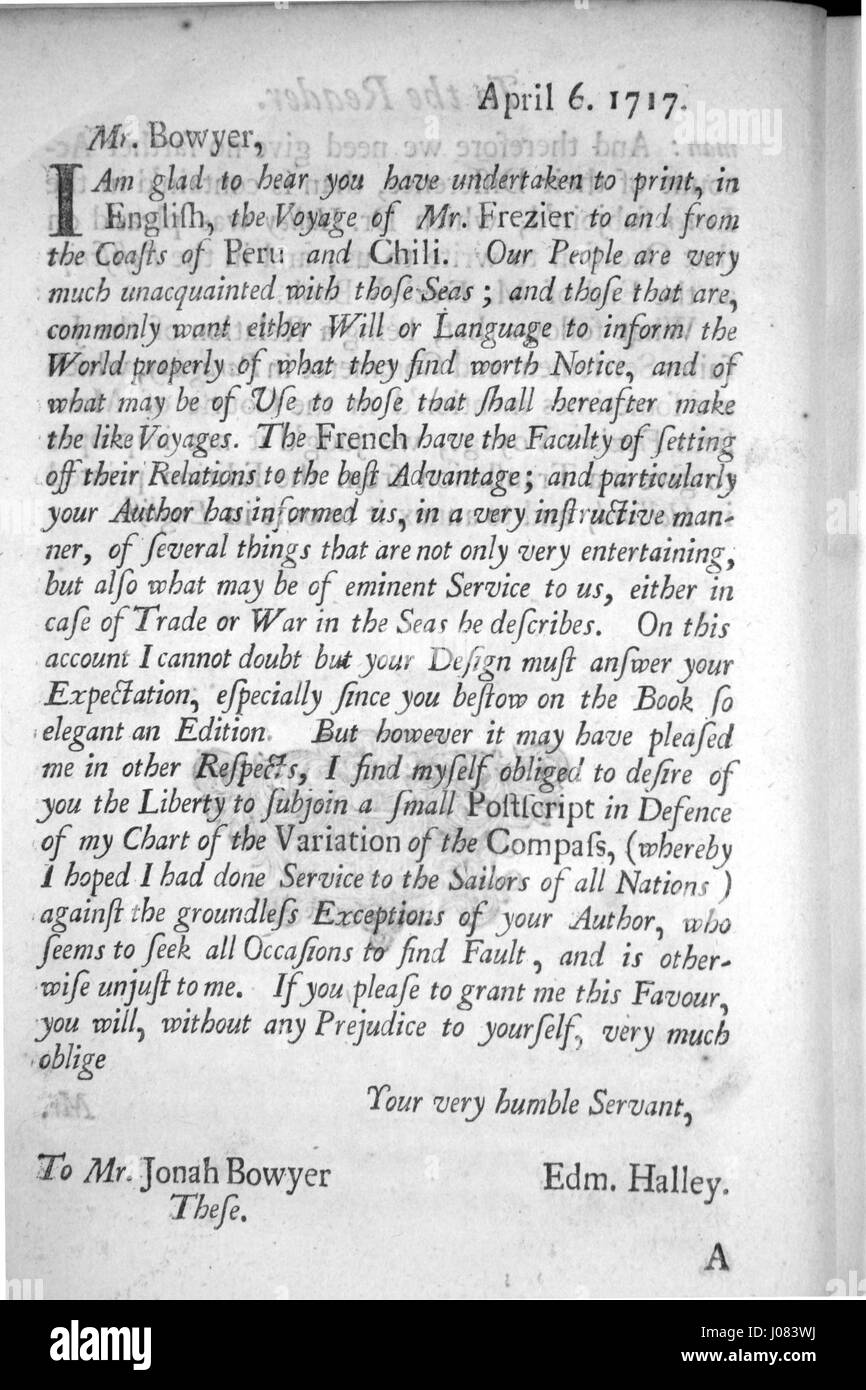 April 6. 1717.
Mr. Bowyer,
I Am glad to hear you have undertaken to print, in
Engliſh, the Voyage of Mr. Frezier to and from
the Coaſts of Peru and Chili. Our People are very
much unacquainted with thoſe Seas; and thoſe that are,
commonly want either Will or Language to inform the
World properly of what they find worth Notice, and of
what may be of Uſe to thoſe that ſhall hereafter make
the like Voyages. The French have the Faculty of ſetting
off their Relations to the beſt Advantage; and particularly
your Author has informed us, in a very inſtructive man-
ner, of ſeveral things that are not only very entertaining,
but alſo what may be of eminent Service to us, either in
caſe of Trade or War in the Seas he deſcribes. On this
account I cannot doubt but your Deſign muſt anſwer your
Expectation, eſpecially ſince you beſtow on the Book ſo
elegant an Edition. But however it may have pleaſed
me in other Reſpects, I find myſelf obliged to deſire of
you the Liberty to ſubjoin a ſmall Poſtſcript in Defence
of my Chart of the Variation of the Compaſs, (whereby
I hoped I had done Service to the Sailors of all Nations)
againſt the groundleſs Exceptions of your Author, who
ſeems to ſeek all Occaſions to find Fault, and is other-
wiſe unjuſt to me. If you pleaſe to grant me this Favour,
you will, without any Prejudice to yourſelf, very much
oblige
Your very humble Servant,
To Mr. Jonah Bowyer Edm. Halley.
Theſe.
A
alamy
Image ID: J083WJ
www.alamy.com